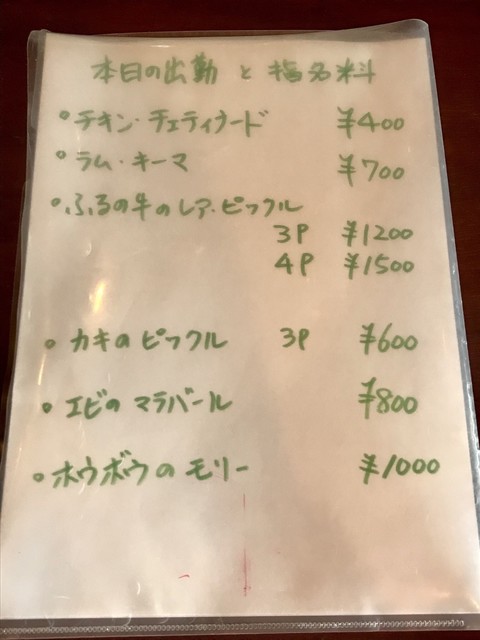 本日の出勤 と 指名料
・チキン・チェティナード ¥400
・ラム・キーマ ¥700
・ふるの牛のレア・ピックル
3P ¥1200
4P ¥1500
・カキのピックル 3P ¥600
・エビのマラバール ¥800
・ホウボウのモリー ¥1000